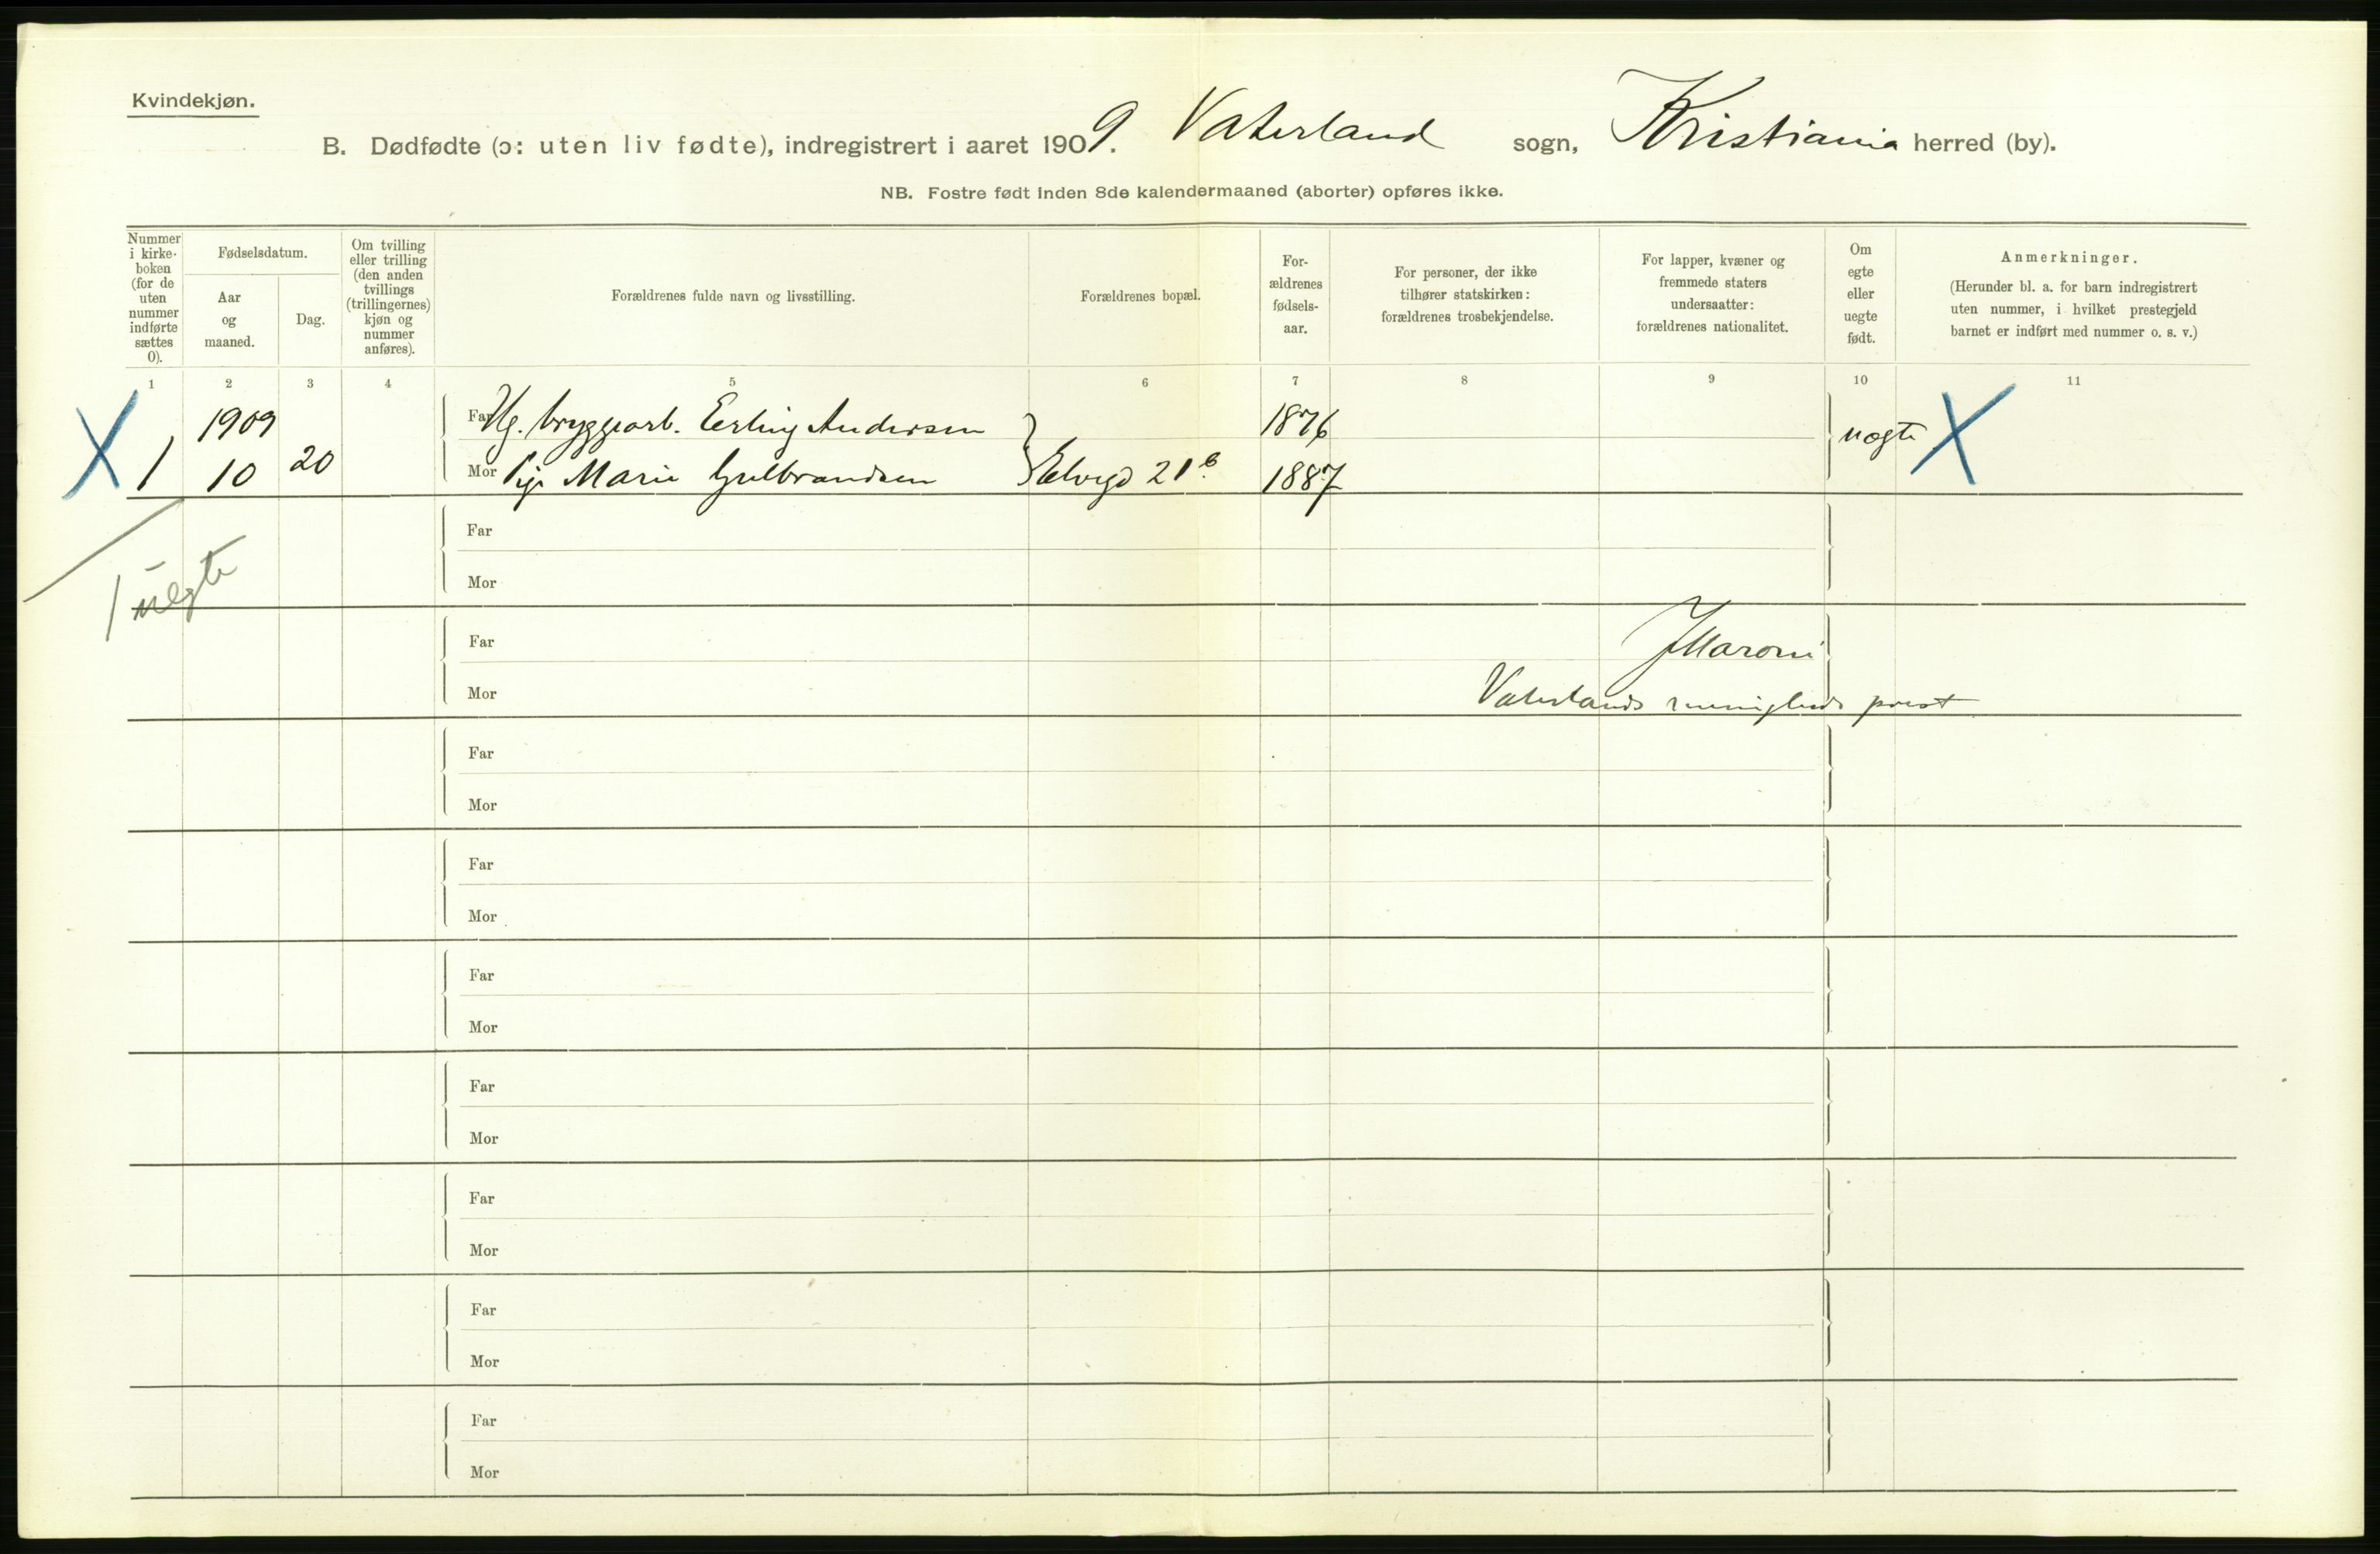 Kvindekjøn.
B. Dødfødte (ɔ: uten liv fødte), indregistrert i aaret 1909. Vaterland sogn, Kristiania herred (by).
NB. Fostre født inden 8de kalendermaaned (aborter) opføres ikke.
Nummer i kirke-boken (for de uten nummer indførte sættes 0).
Fødselsdatum.
Aar og maaned.
Dag.
Om tvilling eller trilling (den anden tvillings (trillingernes) kjøn og nummer anføres).
Forældrenes fulde navn og livsstilling.
Forældrenes bopæl.
For-ældrenes fødsels-aar.
For personer, der ikke tilhører statskirken: forældrenes trosbekjendelse.
For lapper, kvæner og fremmede staters undersaatter: forældrenes nationalitet.
Om egte eller uegte født.
Anmerkninger.
(Herunder bl. a. for barn indregistrert uten nummer, i hvilket prestegjeld barnet er indført med nummer o. s. v.)
1 2 3 4 5 6 7 8 9 10 11
1909 Far Ug. bryggearb. Erling Andersen 1876 uegte
1 10 20 Mor Pige Marie Gulbrandsen Elvegd 21 b. 1887
Far
1 uegte Mor
Far J Maroni
Mor Vaterlands menigheds prest
Far
Mor
Far
Mor
Far
Mor
Far
Mor
Far
Mor
Far
Mor
Far
Mor